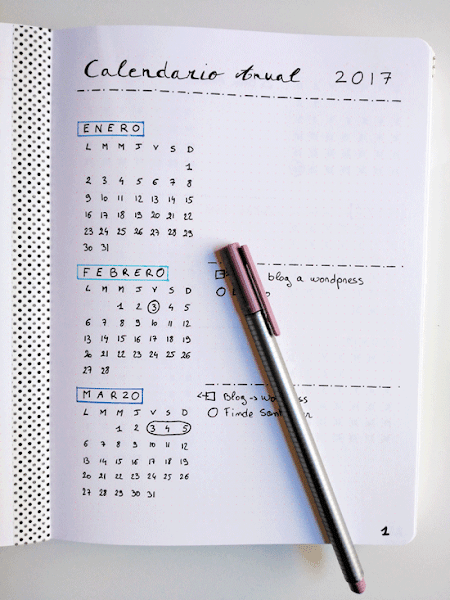 Calendario Anual 2017
ENERO
L M M J V S D
1
2 3 4 5 6 7 8
9 10 11 12 13 14 15
16 17 18 19 20 21 22
23 24 25 26 27 28 29
30 31
FEBRERO
blog a wordpress
L M M J V S D
1 2 3 4 5
6 7 8 9 10 11 12
13 14 15 16 17 18 19
20 21 22 23 24 25 26
27 28
MARZO
Blog →
L M M J V S D
Finde
1 2 3 4 5
6 7 8 9 10 11 12
13 14 15 16 17 18 19
20 21 22 23 24 25 26
27 28 29 30 31
1